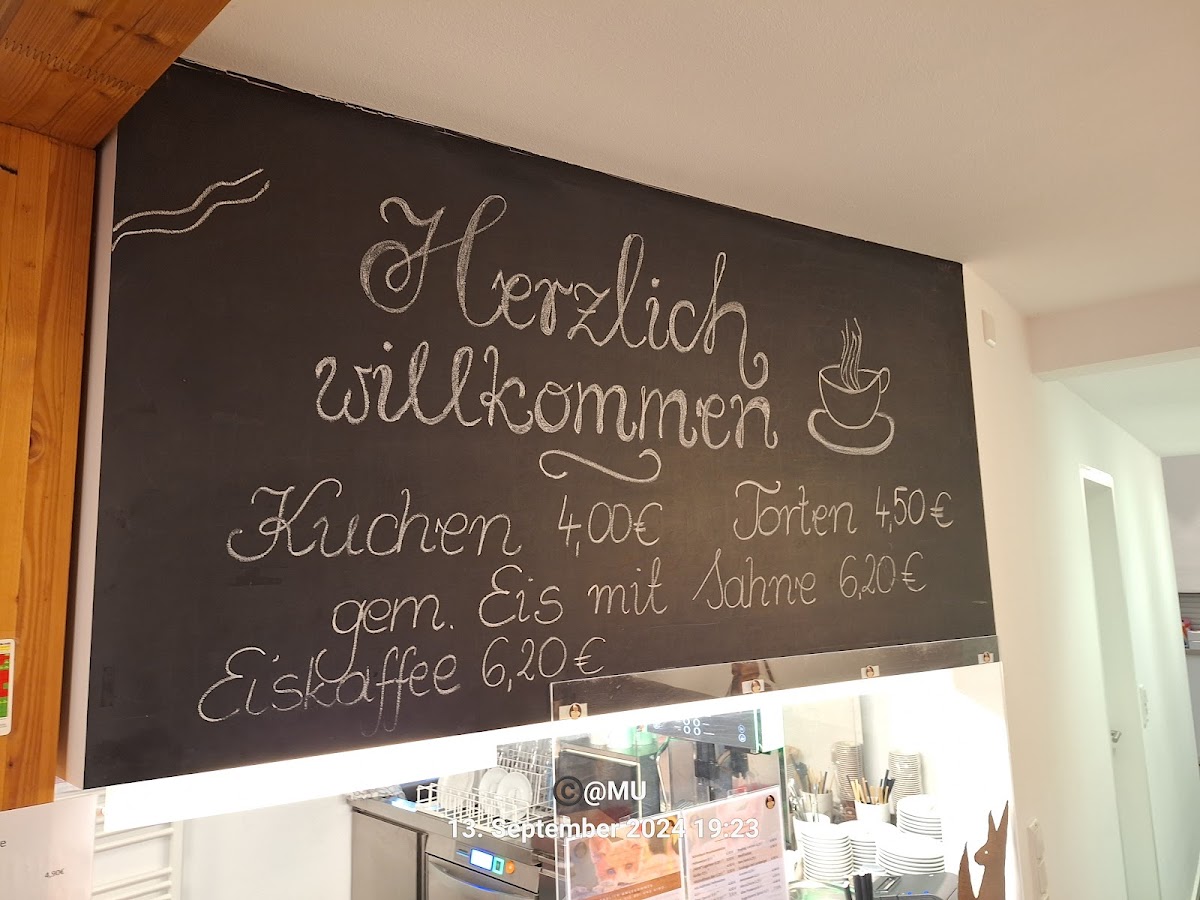 Herzlich
willkommen
Kuchen 4,00€ Torten 4,50€
gem. Eis mit Sahne 6,20€
Eiskaffee 6,20€
4,90€
©@MU
13. September 2024 19:23